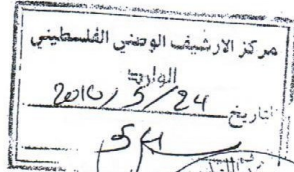 مركز الارشيف الوطني الفلسطيني
الوارد
التاريخ 2016/5/24